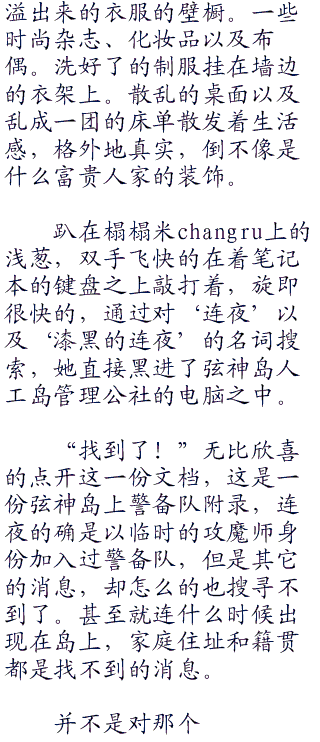 溢出来的衣服的壁橱。一些
时尚杂志、化妆品以及布
偶。洗好了的制服挂在墙边
的衣架上。散乱的桌面以及
乱成一团的床单散发着生活
感，格外地真实，倒不像是
什么富贵人家的装饰。
趴在榻榻米changru上的
浅葱，双手飞快的在着笔记
本的键盘之上敲打着，旋即
很快的，通过对‘连夜’以
及‘漆黑的连夜’的名词搜
索，她直接黑进了弦神岛人
工岛管理公社的电脑之中。
“找到了！”无比欣喜
的点开这一份文档，这是一
份弦神岛上警备队附录，连
夜的确是以临时的攻魔师身
份加入过警备队，但是其它
的消息，却怎么的也搜寻不
到了。甚至就连什么时候出
现在岛上，家庭住址和籍贯
都是找不到的消息。
并不是对那个